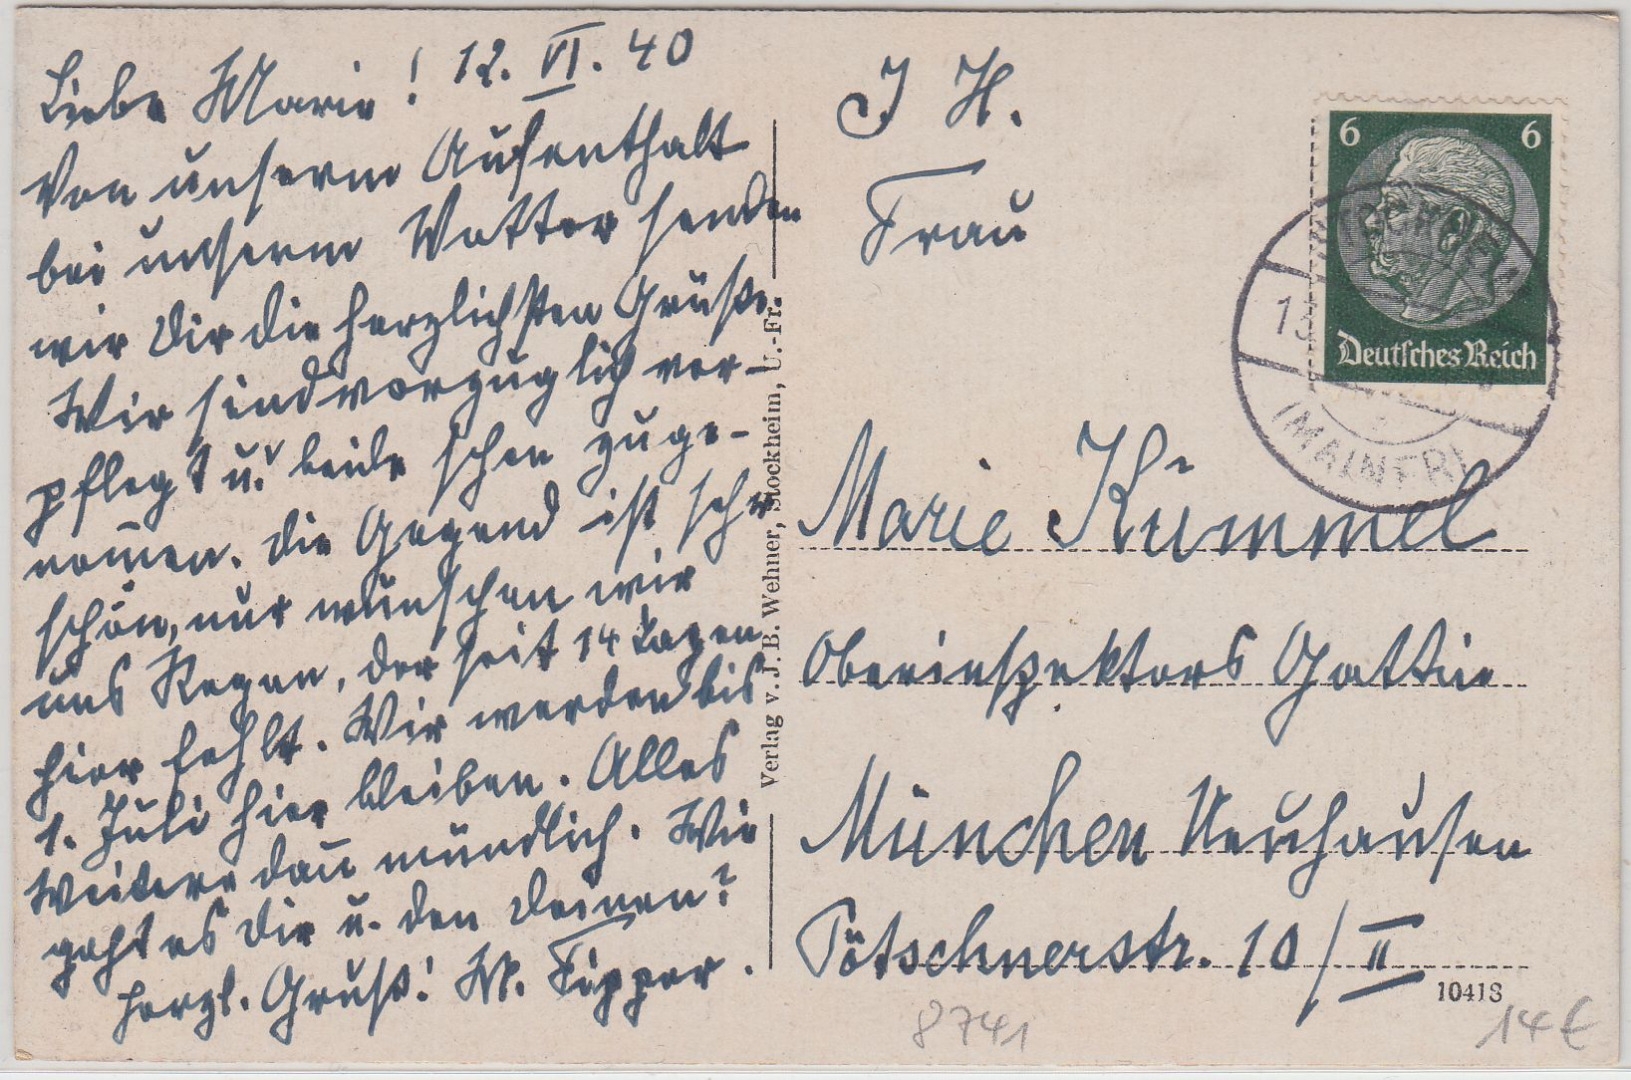 Liebe Marie! 12. VI. 40
Von unserm Aufenthalt
bei unserm Vatter senden
wir Dir die herzlichsten Grüße.
Wir sind vorzüglich ver-
pflegt u. beide schon zuge-
nomen. Die Gegend ist sehr
schön, nur wünschen wir
uns Regen, der seit 14 Tagen
hier fehlt. Wir werden bis
1. Juli hier bleiben. Alles
Weitere dan̄ mündlich. Wie
geht es Dir u. den Deinen?
Herzl. Gruß!
Verlag v. J. B. Wehner, Stockheim, U.-Fr.
I H.
Frau
Marie Kümmel
Oberinspektors Gattin
München Neuhausen
Pötschnerstr. 10/II
6 6
Deutsches Reich
13
(MAINFR)
10418
8741
14€